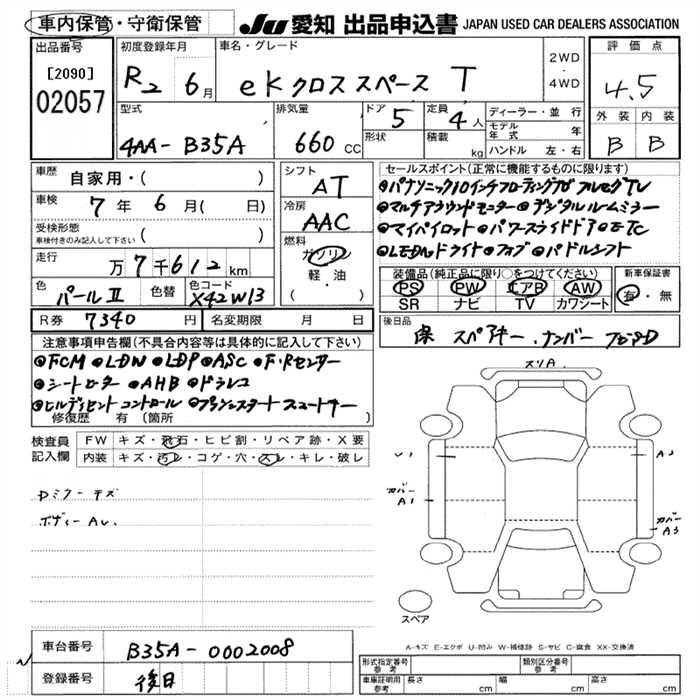 車内保管・守衛保管
JU 愛知 出品申込書 JAPAN USED CAR DEALERS ASSOCIATION
出品番号
[2090]
02057
初度登録年月
R2 6月
車名・グレード
ekクロススペース T
2WD
・
4WD
評価点
4.5
外装 内装
B B
型式
4AA-B35A
排気量
660 CC
ドア
5
定員
4人
形状
積載
kg
ディーラー・並行
モデル年式 年
ハンドル 左・右
車歴 自家用・( )
車検 7年 6月( 日)
受検形態
車検付きのみ記入して下さい ( )
走行 万7千612km
色 パールII
色替
色コード X42W13
R券 7340円
名変期限 月 日
シフト
AT
冷房
AAC
燃料
ガソリン
軽・油
( )
セールスポイント(正常に機能するものに限ります)
●パナソニック10インチフローティングナビ フルセグTV
●マルチアラウンドモニター ●デジタルルームミラー
●マイパイロット ●パワースライドドア ●ETC
●LEDヘッドライト ●フォグ ●パドルシフト
装備品(純正品に限り○をつけてください)
PS PW エアB AW
SR ナビ TV カワシート
新車保証書
有・無
後日品
保 スペアキー、ナンバー
注意事項申告欄(不具合内容等は具体的に記入して下さい)
●FCM ●LDW ●LDP ●ASC ●F・Rセンサー
●シートヒーター ●AHB ●ドラレコ
●ヒルディセントコントロール ●プッシュスタート スマートキー
修復歴 有 (箇所 )
検査員記入欄
FW キズ・飛石・ヒビ割・リペア跡・X要
内装 キズ・汚レ・コゲ・穴・スレ・キレ・破レ
Dミラーキズ
ボディーAU.
スリA
U1
A2
カバー
A1
カバー
A3
スペア
A-キズ E-エクボ U-凹み W-補修跡 S-サビ C-腐食 XX-交換済
車台番号 B35A-0002008
登録番号 後日
形式指定番号 参考
類別区分番号 参考
車庫証明用 参考
長さ cm 幅 cm 高さ cm